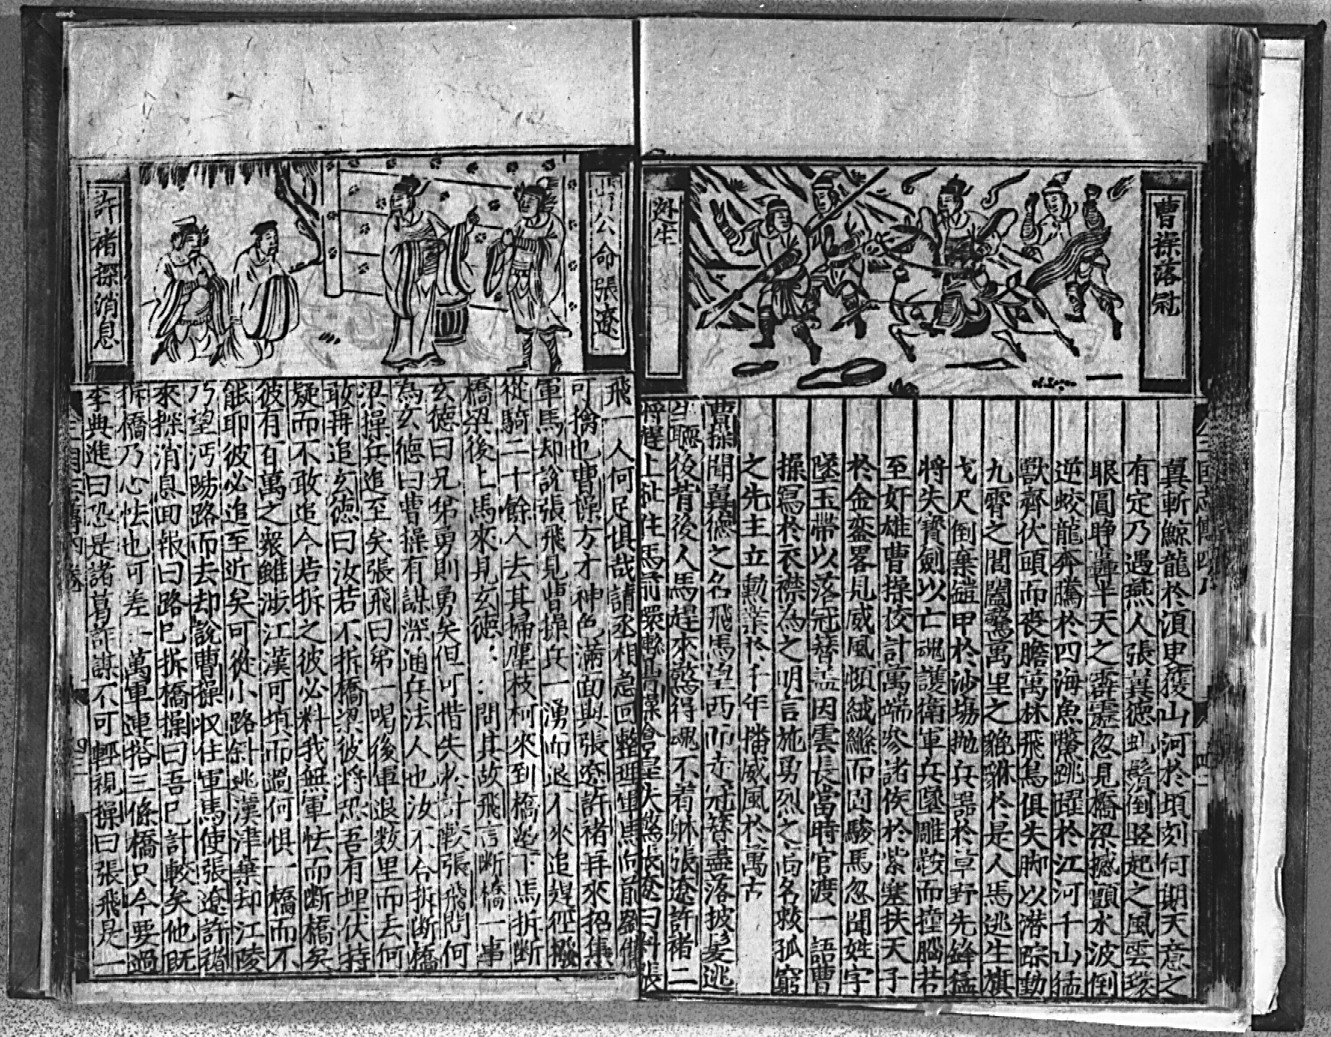 曹操落冠
外生
翼斬鯨龍於湏史獲山河於頃刻何期天意之
有定乃遇燕人張翼德虬鬚倒竪起之風雲環
眼圓睁轟半天之霹靂忽見橋梁撼顫水波倒
逆蛟龍奔騰於四海魚鱉跳躍於江河千山猛
獸齊伏頭而喪膽萬林飛鳥俱失脚以潜踪動
九霄之閶闔驚萬里之貔貅於是人馬逃生旗
戈尺倒棄鎧甲於沙塲抛兵噐於草野先鋒猛
將失寳劍以亡魂護衛軍兵墜雕鞍而撞腦若
至奸雄曹操狡計萬端參諸侯於紫塞扶天子
於金鑾畧見威風頓絨縧而囬駿馬忽聞姓字
墜玉帶以落冠簪盖因雲長當時官渡一語曹
操寫於衣襟為之明言施勇烈之高名救孤窮
之先主立勳業於千年播威風於萬古
曹操聞翼德之名飛馬望西而走冠簪盡落披髮逃
生聽後背後人馬趕來驚得魂不着躰張遼許褚二
將趕上扯住馬前嚼轡曹操倉皇大驚張遼曰料張
公命張遼
許褚探消息
飛一人何足惧哉請丞相急回整理軍馬向前劉備
可擒也曹操方才神色滿面與張遼許褚再來招集
軍馬却説張飛見曹操兵一湧而退不來追趕徑撥
從騎二十餘人去其掃塵枝柯來到橋邊下馬拆断
橋梁後上馬來見玄德問其故飛言断橋一事
玄德曰兄弟勇則勇矣但可惜失於計較張飛問何
為玄德曰曹操有謀深通兵法人也汝不合拆断橋
梁操兵追至矣張飛曰弟一喝後軍退数里而去何
敢再追玄德曰汝若不拆橋梁彼將恐吾有埋伏持
疑而不敢追今若拆之彼必料我無軍怯而断橋矣
彼有百萬之衆雖涉江漢可填而過何惧一橋而不
能耶彼必追至近矣可從小路斜迯漢津華却江陵
乃望沔陽路而去却説曹操収住軍馬使張遼許褚
來探消息回報曰路已拆橋操曰吾已計較矣他既
拆橋乃心怯也可差一萬軍連搭三條橋只今要過
李典進曰恐是諸葛詐謀不可輕視操曰張飛是一